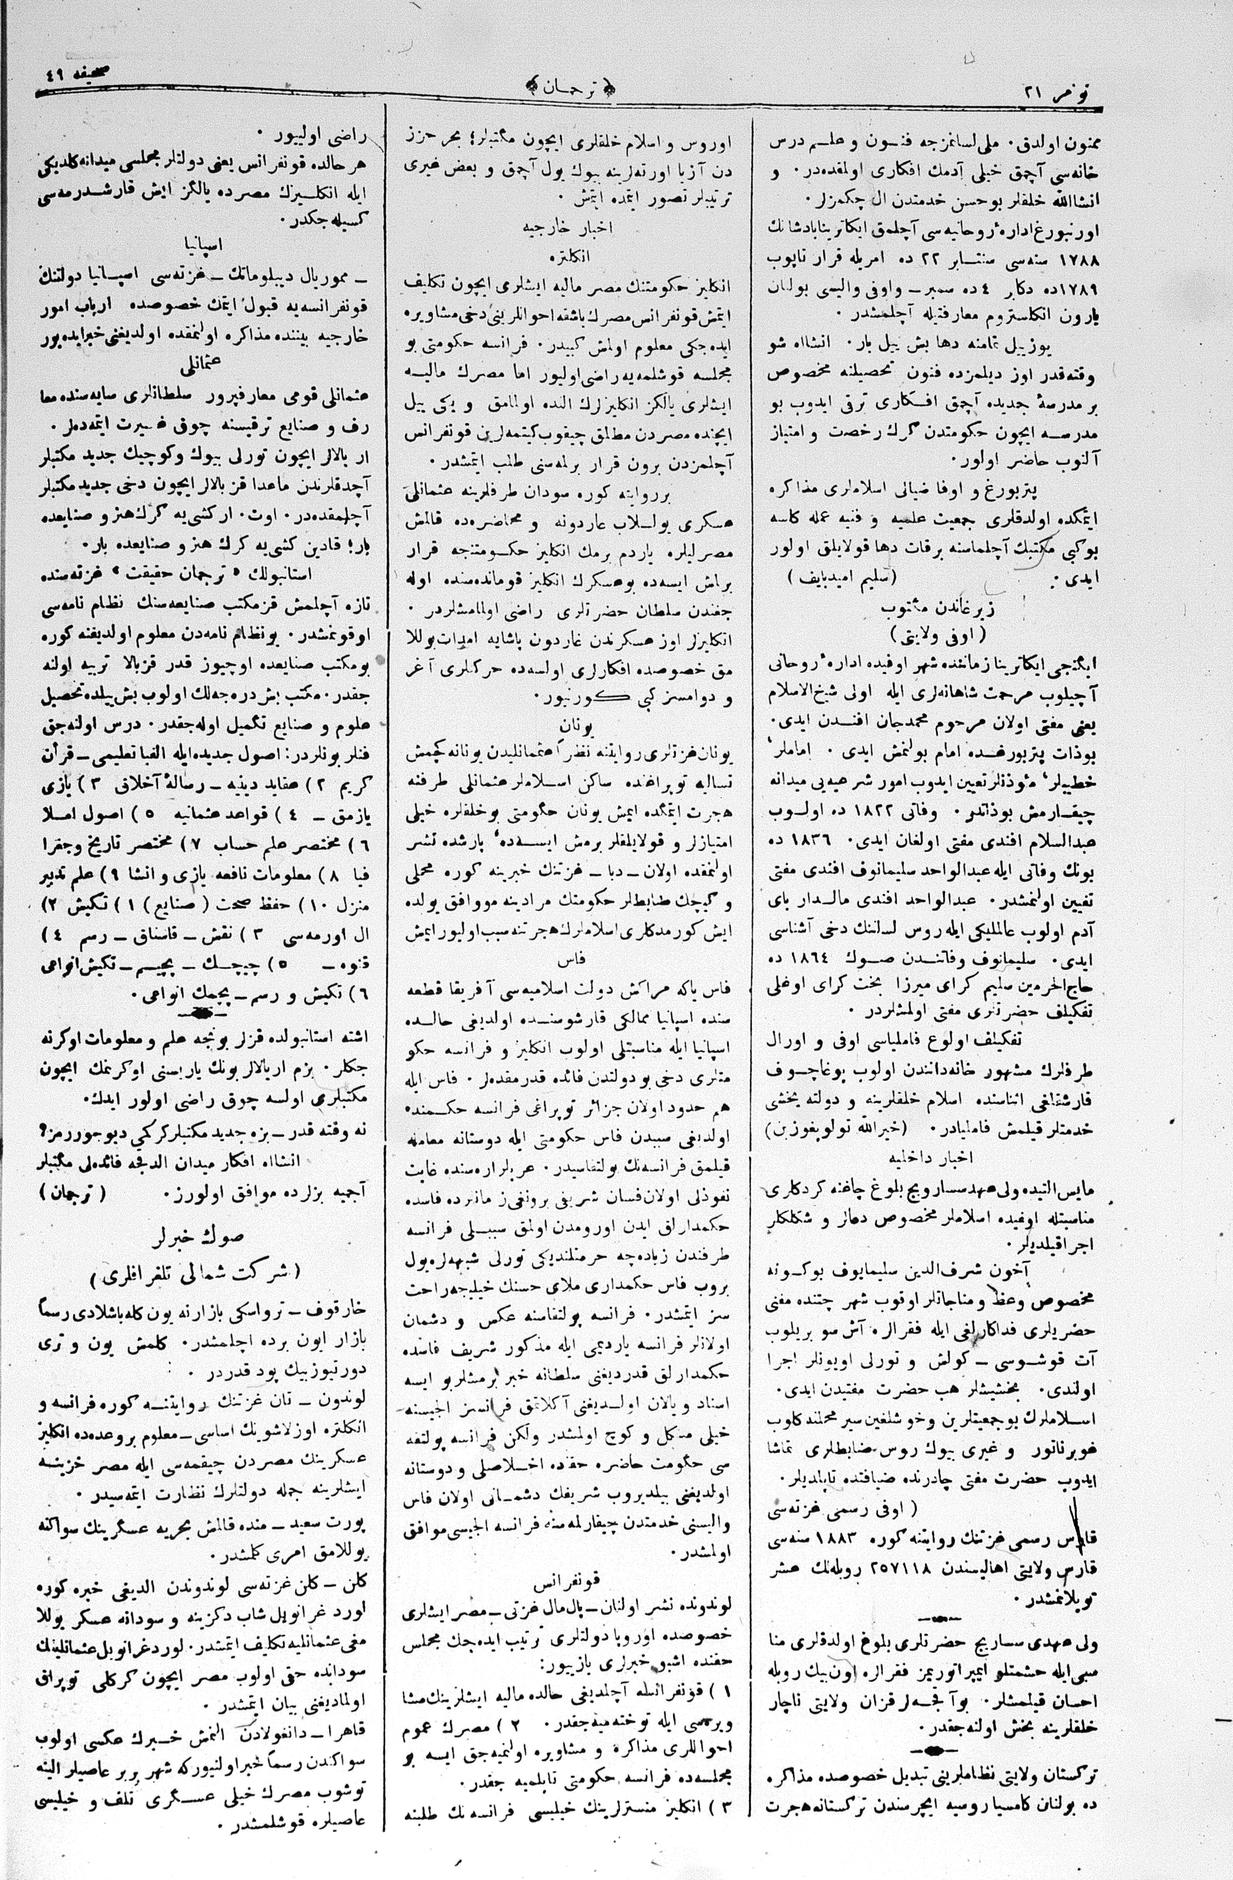 نومر ٢١
﴿ ترجمان ﴾
صحیفه ٤٩
ممنون اولدق. ملی لسانمزجه فنون و علم درس
خانه‌سی آچمق خیلی آدمك افکاری اولمقده‌در. و
انشاالله خلفلر بوحسن خدمتدن ال چکمزلر.
اورنبورغ اداره‌ٔ روحانیه‌سی آچلمق ایکاترینا پادشانك
١٧٨٨ سنه‌سی سنتابر ٢٢ ده امریله قرار تاپوب
١٧٨٩ده دکابر ٤ ده سمبر – واوفی والیسی بولنان
بارون انکلستروم معارفتیله آچلمشدر.
یوزییل تمامنه دها بش ییل بار. انشااه شو
وقته‌قدر اوز دیلمزده فنون تحصیلنه مخصوص
بر مدرسهٔ جدیده آچمق افکاری ترقی ایدوب بو
مدرسه ایچون حکومتدن گرك رخصت و امتیاز
آلنوب حاضر اولور.
پتربورغ و اوفا ضیالی اسلاملری مذاکره
ایتمکده اولدقلری جمعیت علمیه و فنیه عمله کلسه
بوکبی مکتبك آچلماسنه برقات دها قولایلق اولور
ایدی. (سلیم امیدبایف)
زیرغاندن مکتوب
(اوفی ولایتی)
ایکنجی ایکاترینا زماننده شهر اوفیده اداره‌ٔ روحانی
آچیلوب مرحمت شاهانه‌لری ایله اولی شیخ الاسلام
یعنی مفتی اولان مرحوم محمدجان افندن ایدی.
بوذات پتربورغده امام بولنمش ایدی. اماملر،
خطیبلر، مؤذنلر تعیین ایدوب امور شرعیه‌یی میدانه
چیقارمش بوذاتدر. وفاتی ١٨٢٢ ده اولوب
عبدالسلام افندی مفتی اولغان ایدی. ١٨٣٦ ده
بونك وفاتی ایله عبدالواحد سلیمانوف افندی مفتی
تعیین اولنمشدر. عبدالواحد افندی مالدار بای
آدم اولوب عالملیکی ایله روس لساننك دخی آشناسی
ایدی. سلیمانوف وفاتندن صوك ١٨٦٤ ده
حاج الحرمین سلیم کرای میرزا بخت کرای اوغلی
تفکیلف حضرتلری مفتی اولمشلردر.
تفکیلف اولوغ فاملیاسی اوفی و اورال
طرفلرك مشهور خانه‌دانندن اولوب پوغاچوف
قارشقلغی اثناسنده اسلام خلقلرینه و دولته یخشی
خدمتلر قیلمش فاملیادر. (خیرالله نولویفوزین)
اخبار داخلیه
مایس التیده ولی عهد سسارویچ بلوغ چاغنه کردکلری
مناسبتله اوفیده اسلاملر مخصوص دعالر و شنلکلر
اجرا قیلدیلر.
آخون شرف‌الدین سلیمایوف بوکونه
مخصوص وعظ و مناجاتلر اوقوب شهر چتنده مفتی
حضریلری فداکارلغی ایله فقرالره آش سو بریلوب
آت قوشوسی – کولش و تورلی اویونلر اجرا
اولندی. بخشیشلر هب حضرت مفتیدن ایدی.
اسلاملرك بوجمعیتلرین وخوشلغین سیر محلنه کلوب
غوبرناتور و غیری بیوك روس ضابطلری تماشا
ایدوب حضرت مفتی چادرنده ضیافتده تاپلدیلر.
(اوفی رسمی غزته‌سی
قارس رسمی غزتنك روایتنه کوره ١٨٨٣ سنه‌سی
قارس ولایتی اهالیسندن ٢٥٧١١٨ روبله‌لك عشر
توپلانمشدر.
ولی عهدی سساریج حضرتلری بلوغ اولدقلری منا
سبی‌ایله حشمتلو ایمپراتوریمز فقرالره اون‌بیك روبله
احسان قیلمشلر. بوآقچه‌لر قزان ولایتی ناچار
خلقلرینه بخش اولنه‌جقدر.
ترکستان ولایتی نظاملرینی تبدیل خصوصده مذاکره
ده بولنان کامسیا روسیه ایچرسندن ترکستانه هجرت
اوروس و اسلام خلقلری ایچون مکتبلر؛ بحر حزز
دن آزیا اورته‌لرینه بیوك یول آچمق و بعض غیری
ترتیبلر تصور ایتمده ایتمش.
اخبار خارجیه
انکلتره
انکلیز حکومتنك مصر مالیه ایشلری ایچون تکلیف
ایتمش قونفرانس مصرك باشقه احوالربنی دخی مشاویره
ایده‌جکی معلوم اولمش کبیدر. فرانسه حکومتی بو
مجلسه قوشلمه‌یه راضی اولیور اما مصرك مالیه
ایشلری یالکز انکلیزلرك النده اولمامق و یکی ییل
ایچنده مصردن مطلق چیقوب کیتمه‌لرین قونفرانس
آچلمزدن برون قرار برلمه‌سنی طلب ایتمشدر.
برروایته کوره سودان طرفلرینه عثمانلی
عسکری یولالاب غاردونه و محاضره‌ده قالمش
مصرلیلره یاردم برمك انکلیز حکومتنجه قرار
براش ایسه‌ده بوعسکرك انکلیز قومانده‌سنده اوله
جغندن سلطان حضرتلری راضی اولمامشلردر.
انکلیزلر اوز عسکرندن غاردون پاشایه امداد یوللا
مق خصوصده افکارلری اولسه‌ده حرکلری آغر
و دوامسز کبی کورنیور.
یونان
یونان غزتلری روایتنه نظراً عثمانلیدن یونانه کچمش
تسالیه توپراغنده ساکن اسلاملر عثمانلی طرفنه
هجرت ایتمکده ایمش یونان حکومتی بوخلقلره خیلی
امتیازلر و قولایلقلر برمش ایسه‌ده، یارشده نشر
اولنمقده اولان – دبا – غزتنك خبرینه کوره محلی
و کیچك ضابطلر حکومتك مرادینه مووافق یولده
ایش کورمدکلری اسلاملرك هجرتنه سبب اولیور ایمش
فاس
فاس یاکه مراکش دولت اسلامیه‌سی آفریقا قطعه
سنده اسپانیا ممالکی قارشوسنده اولدیغی حالده
اسپانیا ایله مناسبتلی اولوب انکلیز و فرانسه حکو
متلری دخی بو دولتدن فائده قدرمقده‌لر. فاس ایله
هم حدود اولان جزائر توپراغی فرانسه حکمنده
اولدیغی سببدن فاس حکومتی ایله دوستانه معامله
قیلمق فرانسه‌نك پولتقاسیدر. عربلر اره‌سنده غایت
نفوذلی اولان فسان شریفی برونغی زمانرده فاسده
حکمدارلق ایدن اورومدن اولمق سببلی فرانسه
طرفندن زیاده‌چه حرمتلندیکی تورلی شبهه‌لره یول
بروب فاس حکمداری ملای حسنك خیلیجه راحت
سز ایتمشدر. فرانسه پولتقاسنه عکس و دشمان
اولانلر فرانسه یاردیمی ایله مذکور شریف فاسده
حکمدارلق قدردیغنی سلطانه خبر برمشلر بو ایسه
اسناد و یالان اولدیغنی آکلاتمق فرانسز الجیسنه
خیلی مشکل و کوچ اولمشدر ولکن فرانسه پولتقه
سی حکومت حاضره حقنده اخلاصلی و دوستانه
اولدیغنی بیلدیروب شریفك دشمانی اولان فاس
والیسنی خدمتدن چیقارلمه‌سنه فرانسه الجیسی موافق
اولمشدر.
قونفرانس
لوندونده نشر اولنان – پال مال غزتی – مصر ایشلری
خصوصده اوروپا دولتلری ترتیب ایده‌جك مجلس
حقنده اشبو خبرلری یازیبور:
١) قونفرانسله آچلدیغی حالده مالیه ایشلرینك مشا
ویره‌سی ایله توخته‌میه‌جقدر. ٢) مصرك عموم
احواللری مذاکره و مشاویره اولنمیه‌جق ایسه بو
مجلسه‌ده فرانسه حکومتی تاپلمیه جقدر.
٣) انکلیز منسترلرینك خیلیسی فرانسه‌نك طلبنه
راضی اولیبور.
هر حالده قونفرانس یعنی دولتلر مجلسی میدانه کلدیکی
ایله انکلیزك مصرده یالکز ایش قارشدرمه‌سی
کسیله‌جکدر.
اسپانیا
– مموریال دیپلوماتك – غزته‌سی اسپانیا دولتنك
قونفرانسه‌یه قبول ایتمك خصوصده ارباب امور
خارجیه بیننده مذاکره اولنمقده اولدیغنی خبرایده‌یور
عثمانلی
عثمانلی قومی معارفپرور سلطانلری سایه‌سنده معا
رف و صنایع ترقیسنه چوق غیرت ایتمه‌ده‌لر.
ار بالالر ایچون تورلی بیوك وکوچیك جدید مکتبلر
آچدقلرندن ماعدا قز بالالر ایچون دخی جدید مکتبلر
آچلمقده‌در. اوت. ارکشی‌یه گرك هنر و صنایعده
بار؛ قادین کشی‌یه کرك هنر و صنایعده بار.
استانبولك «ترجمان حقیقت» غزته‌سنده
تازه آچلمش قز مکتب صنایعه‌سنك نظام نامه‌سی
اوقونمشدر. بونظام نامه‌دن معلوم اولدیغنه کوره
بومکتب صنایعده اوچیوز قدر قزبالا تربیه اولنه
جقدر. مکتب بش دره‌جه‌لك اولوب بش ییلده تحصیل
علوم و صنایع تکمیل اوله‌جقدر. درس اولنه‌جق
فنلر بونلردر: اصول جدیده‌ایله الفبا تعلیمی – قرأن
کریم ٢) عقاید دینیه – رسالهٔ آخلاق ٣) یازی
یازمق – ٤) قواعد عثمانیه ٥) اصول املا
٦) مختصر علم حساب ٧) مختصر تاریخ وجغرا
فیا ٨) معلومات نافعه یازی و انشا ٩) علم تدبیر
منزل ١٠) حفظ صحت (صنایع) ١) تکیش ٢)
ال اورمه‌سی ٣) نقش – قاسناق – رسم ٤)
قنوه – ٥) چیچك – پچیم – تکیش انواعی
٦) تکیش و رسم – پچمك انواعی.
اشته استانبولده قزلر بونجه علم و معلومات اوکرنه
جکلر. بزم اربالالر بونك یاریسنی اوکرنمك ایچون
مکتبلری اولسه چوق راضی اولور ایدك.
نه وقته قدر – بزه جدید مکتبلر کرکمی دیوجوررمز؟
انشااه افکار میدان الدقچه فائده‌لی مکتبلر
آجمیه بزلرده موافق اولورز. (ترجمان)
صوك خبرلر
(شرکت شمالی تلغرافلری)
خارقوف – ترواسکی بازارنه یون کله باشلادی رسماً
بازار ایون برده اچلمشدر. کلمش یون و تری
دورتیوز بیك پود قدردر.
لوندون – تان غزتنك روایتنه کوره فرانسه و
انکلتره اوزلاشوینك اساسی – معلوم بروعده‌ده انکلیز
عسکرینك مصردن چیقمه‌سی ایله مصر خزینه
ایشلرینه جمله دولتلرك نظارت ایتمه‌سیدر.
پورت سعید – منده قالمش بحریه عسکرینك سواکنه
یوللامق امری کلمشدر.
کلن – کلن غزته‌سی لوندوندن الدیغی خبره کوره
لورد غرانویل شاب دکزینه و سودانه عسکر یوللا
مغی عثمانلیه تکلیف ایتمشدر. لورد غرانویل عثمانلینك
سودانده حقی اولوب مصر ایچون کرکلی توپراق
اولمادیغنی بیان ایتمشدر.
قاهرا – دانغولادن النمش خبرك عکسی اولوب
سواکندن رسماً خبر اولنیورکه شهر بربر عاصیلر الینه
توشوب مصرك خیلی عسکری تلف و خیلیسی
عاصیلره قوشلمشدر.